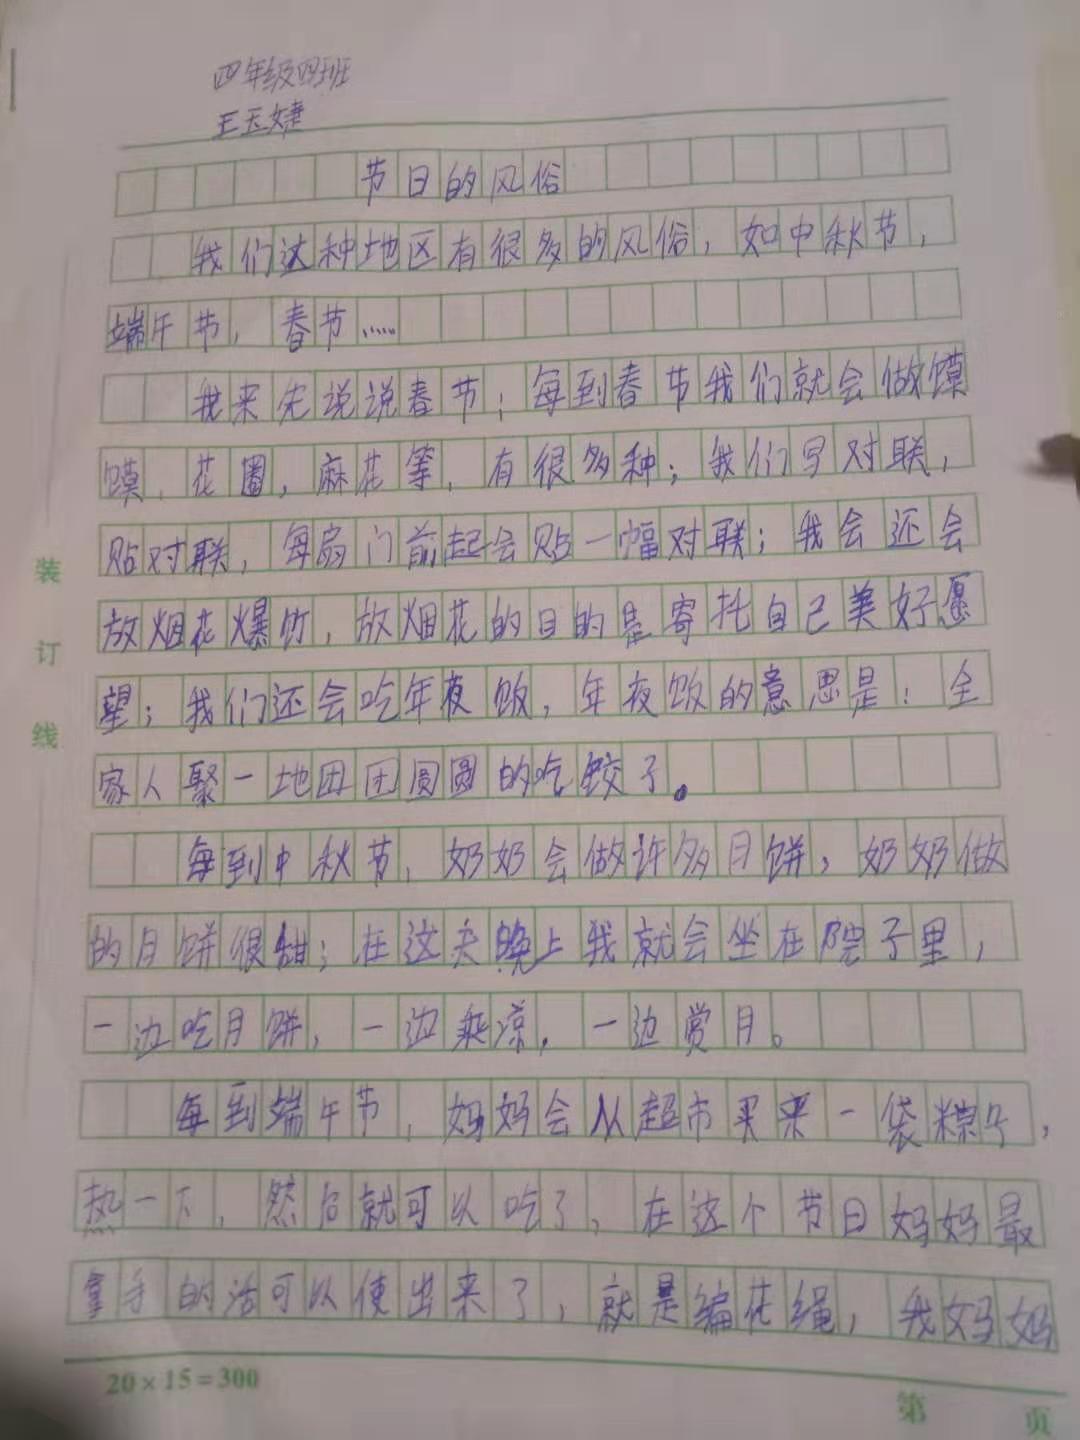 四年级四班
王玉婕
节日的风俗
我们这种地区有很多的风俗，如中秋节，
端午节，春节……
我来先说说春节；每到春节我们就会做馍
馍、花圈，麻花等，有很多种；我们写对联，
贴对联，每扇门前起会贴一幅对联；我会还会
放烟花爆竹，放烟花的目的是寄托自己美好愿
望；我们还会吃年夜饭，年夜饭的意思是：全
家人聚一地团团圆圆的吃饺子。
每到中秋节，奶奶会做许多月饼，奶奶做
的月饼很甜；在这天晚上我就会坐在院子里，
一边吃月饼，一边乘凉，一边赏月。
每到端午节，妈妈会从超市买来一袋粽子，
热一下，然后就可以吃了，在这个节日妈妈最
拿手的活可以使出来了，就是编花绳，我妈妈
装订线
20×15=300
第 页